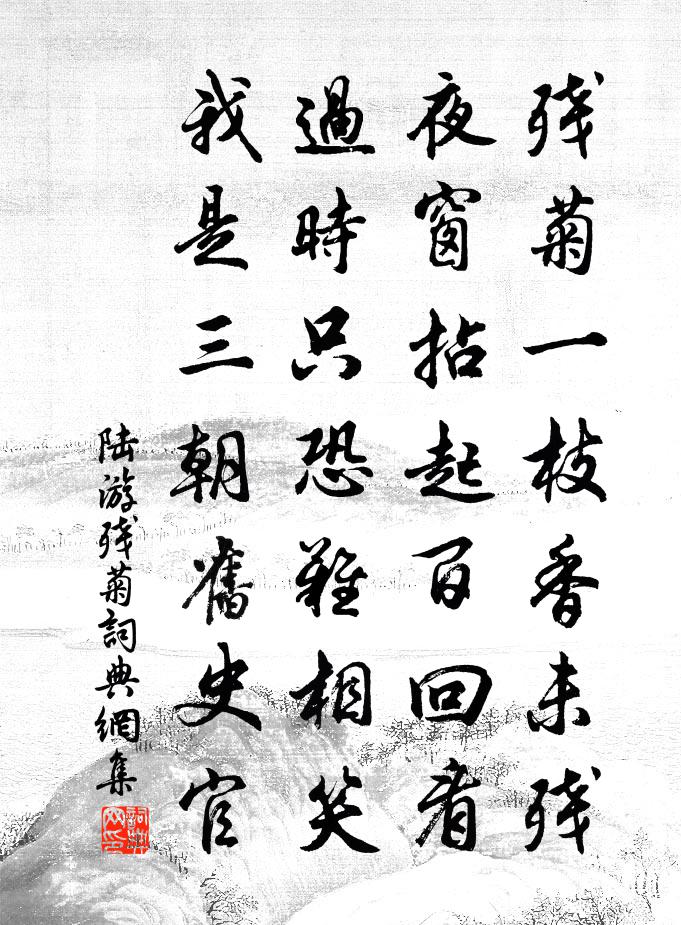 残菊一枝香未残
夜窗拈起百回看
過時只恐難相笑
我是三朝舊史官
陆游残菊詞典網集
詞典網印